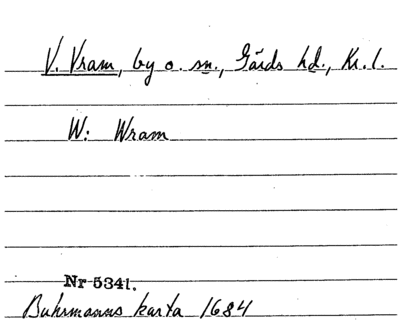 V. Vram, by o. sn., Gärds hd., Kr. l.
W: Wram
Nr 5341.
Buhrmanns karta 1684